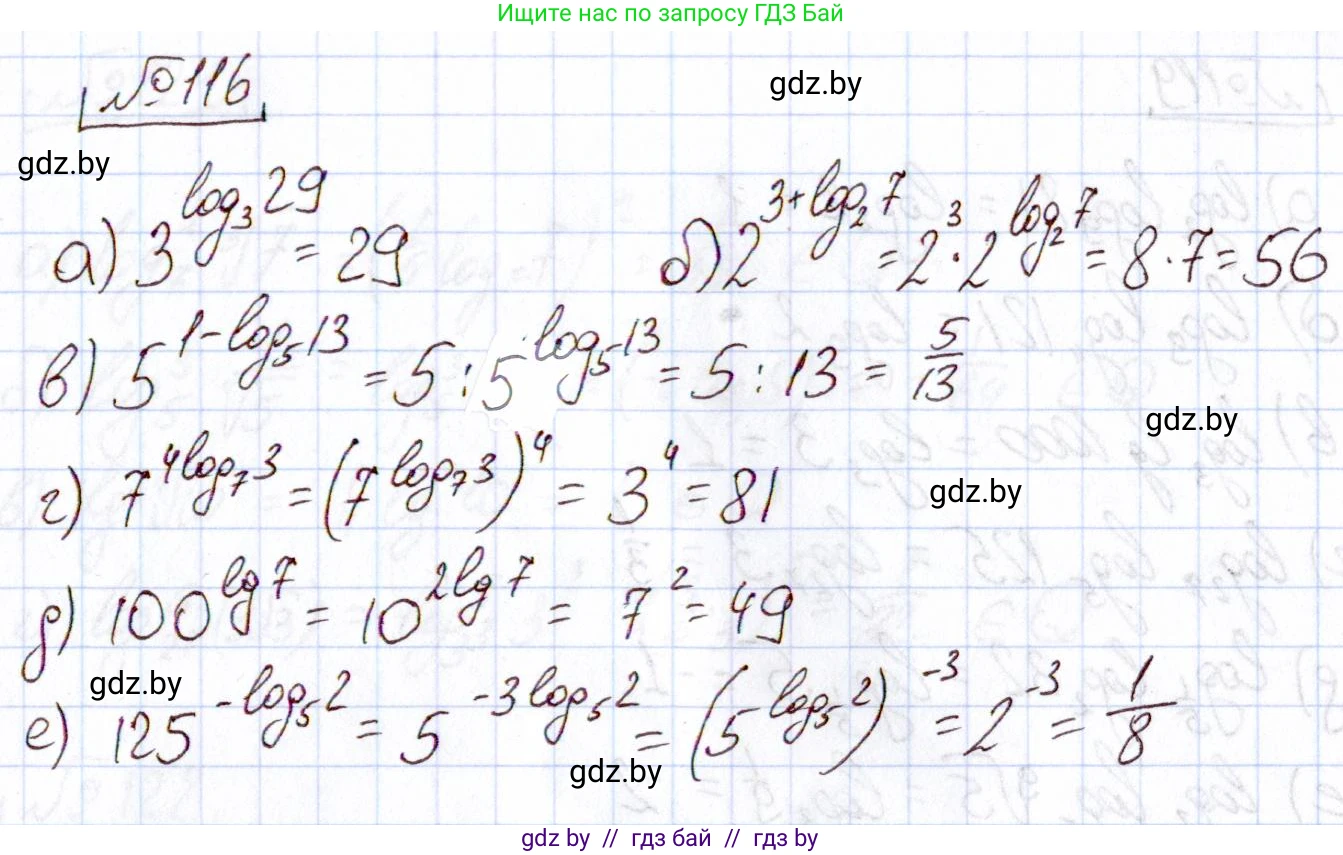 Ищите нас по запросу ГДЗ Бай
№116
gdz.by
gdz.by
а) 3^{log₃ 29} = 29
б) 2^{3+log₂ 7} = 2³ · 2^{log₂ 7} = 8 · 7 = 56
в) 5^{1-log₅ 13} = 5 : 5^{log₅ 13} = 5 : 13 = 5/13
gdz.by
г) 7^{4log₇ 3} = (7^{log₇ 3})⁴ = 3⁴ = 81
gdz.by
д) 100^{lg 7} = 10^{2lg 7} = 7² = 49
gdz.by
е) 125^{-log₅ 2} = 5^{-3log₅ 2} = (5^{log₅ 2})^{-3} = 2^{-3} = 1/8
gdz.by
gdz.by // гдз бай // гдз by